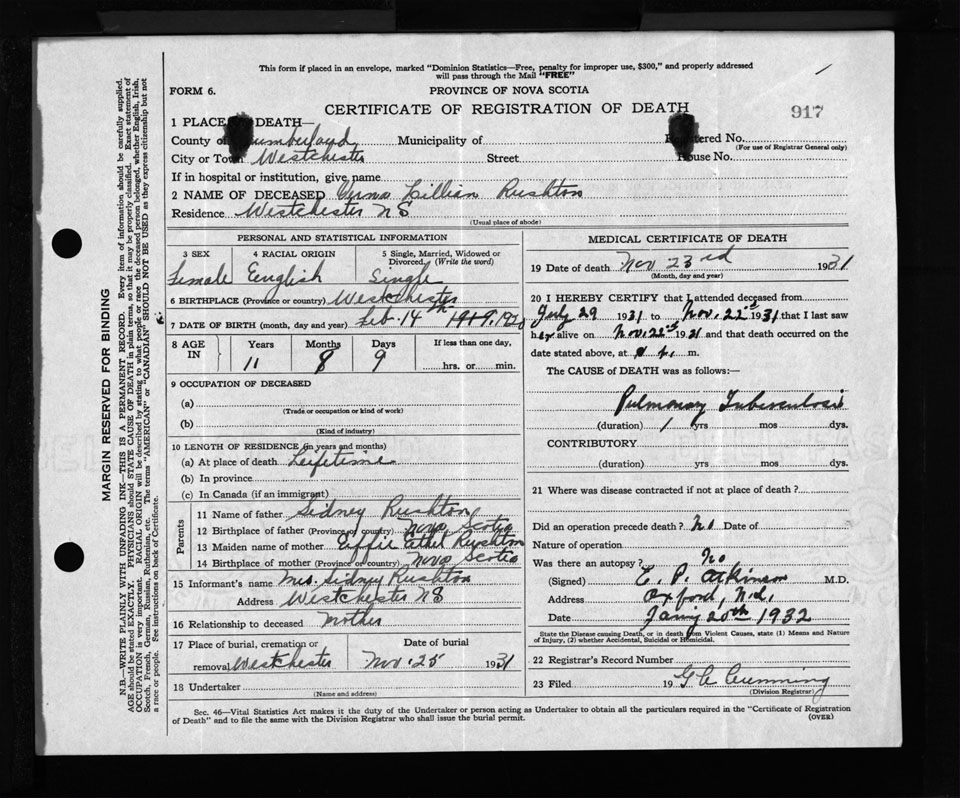 This form if placed in an envelope, marked "Dominion Statistics—Free, penalty for improper use, $300," and properly addressed
will pass through the Mail "FREE"
FORM 6.
PROVINCE OF NOVA SCOTIA
CERTIFICATE OF REGISTRATION OF DEATH
917
1 PLACE DEATH—
County of Cumberland Municipality of Registered No.
(For use of Registrar General only)
City or Town Westchester Street House No.
If in hospital or institution, give name
2 NAME OF DECEASED Verna Lillian Rushton
Residence Westchester NS
(Usual place of abode)
PERSONAL AND STATISTICAL INFORMATION
3 SEX 4 RACIAL ORIGIN 5 Single, Married, Widowed or
Divorced. (Write the word)
Female English Single
6 BIRTHPLACE (Province or country) Westchester
7 DATE OF BIRTH (month, day and year) Feb. 14th 1919, 1920
8 AGE IN Years Months Days If less than one day,
11 8 9 hrs. or min.
9 OCCUPATION OF DECEASED
(a)
(Trade or occupation or kind of work)
(b)
(Kind of industry)
10 LENGTH OF RESIDENCE (in years and months)
(a) At place of death Leifetime
(b) In province
(c) In Canada (if an immigrant)
Parents
11 Name of father Sidney Rushton
12 Birthplace of father (Province or country) Nova Scotia
13 Maiden name of mother Effie Ethel Rushton
14 Birthplace of mother (Province or country) Nova Scotia
15 Informant's name Mrs. Sidney Rushton
Address Westchester NS
16 Relationship to deceased Mother
17 Place of burial, cremation or Date of burial
removal Westchester Nov. 25 1931
18 Undertaker
(Name and address)
MEDICAL CERTIFICATE OF DEATH
19 Date of death Nov 23rd 1931
(Month, day and year)
20 I HEREBY CERTIFY that I attended deceased from
July 29 1931 to Nov. 22nd 1931 that I last saw
her alive on Nov. 22nd 1931 and that death occurred on the
date stated above, at m.
The CAUSE of DEATH was as follows:—
Pulmonary Tuberculosis
(duration) 1 yrs mos dys.
CONTRIBUTORY
(duration) yrs mos dys.
21 Where was disease contracted if not at place of death?
Did an operation precede death? No Date of
Nature of operation
Was there an autopsy? No
(Signed) E. P. Atkinson M.D.
Address Oxford, N.S.
Date 20th 1932
State the Disease causing Death, or in death from Violent Causes, state (1) Means and Nature
of Injury, (2) whether Accidental, Suicidal or Homicidal.
22 Registrar's Record Number
23 Filed 19 G C Cumming
(Division Registrar)
Sec. 46—Vital Statistics Act makes it the duty of the Undertaker or person acting as Undertaker to obtain all the particulars required in the "Certificate of Registration
of Death" and to file the same with the Division Registrar who shall issue the burial permit.
(OVER)
MARGIN RESERVED FOR BINDING
N.B.—WRITE PLAINLY WITH UNFADING INK—THIS IS A PERMANENT RECORD. Every item of information should be carefully supplied.
AGE should be stated EXACTLY. PHYSICIANS should STATE CAUSE OF DEATH in plain terms, so that it may be properly classified. Exact statement of
OCCUPATION is very important. RACIAL ORIGIN will be described by stating to what people or race the deceased person belonged, whether English, Irish,
Scotch, French, German, Russian, Ruthenian, etc. The terms "AMERICAN" or "CANADIAN" SHOULD NOT BE USED as they express citizenship but not
a race or people. See instructions on back of Certificate.